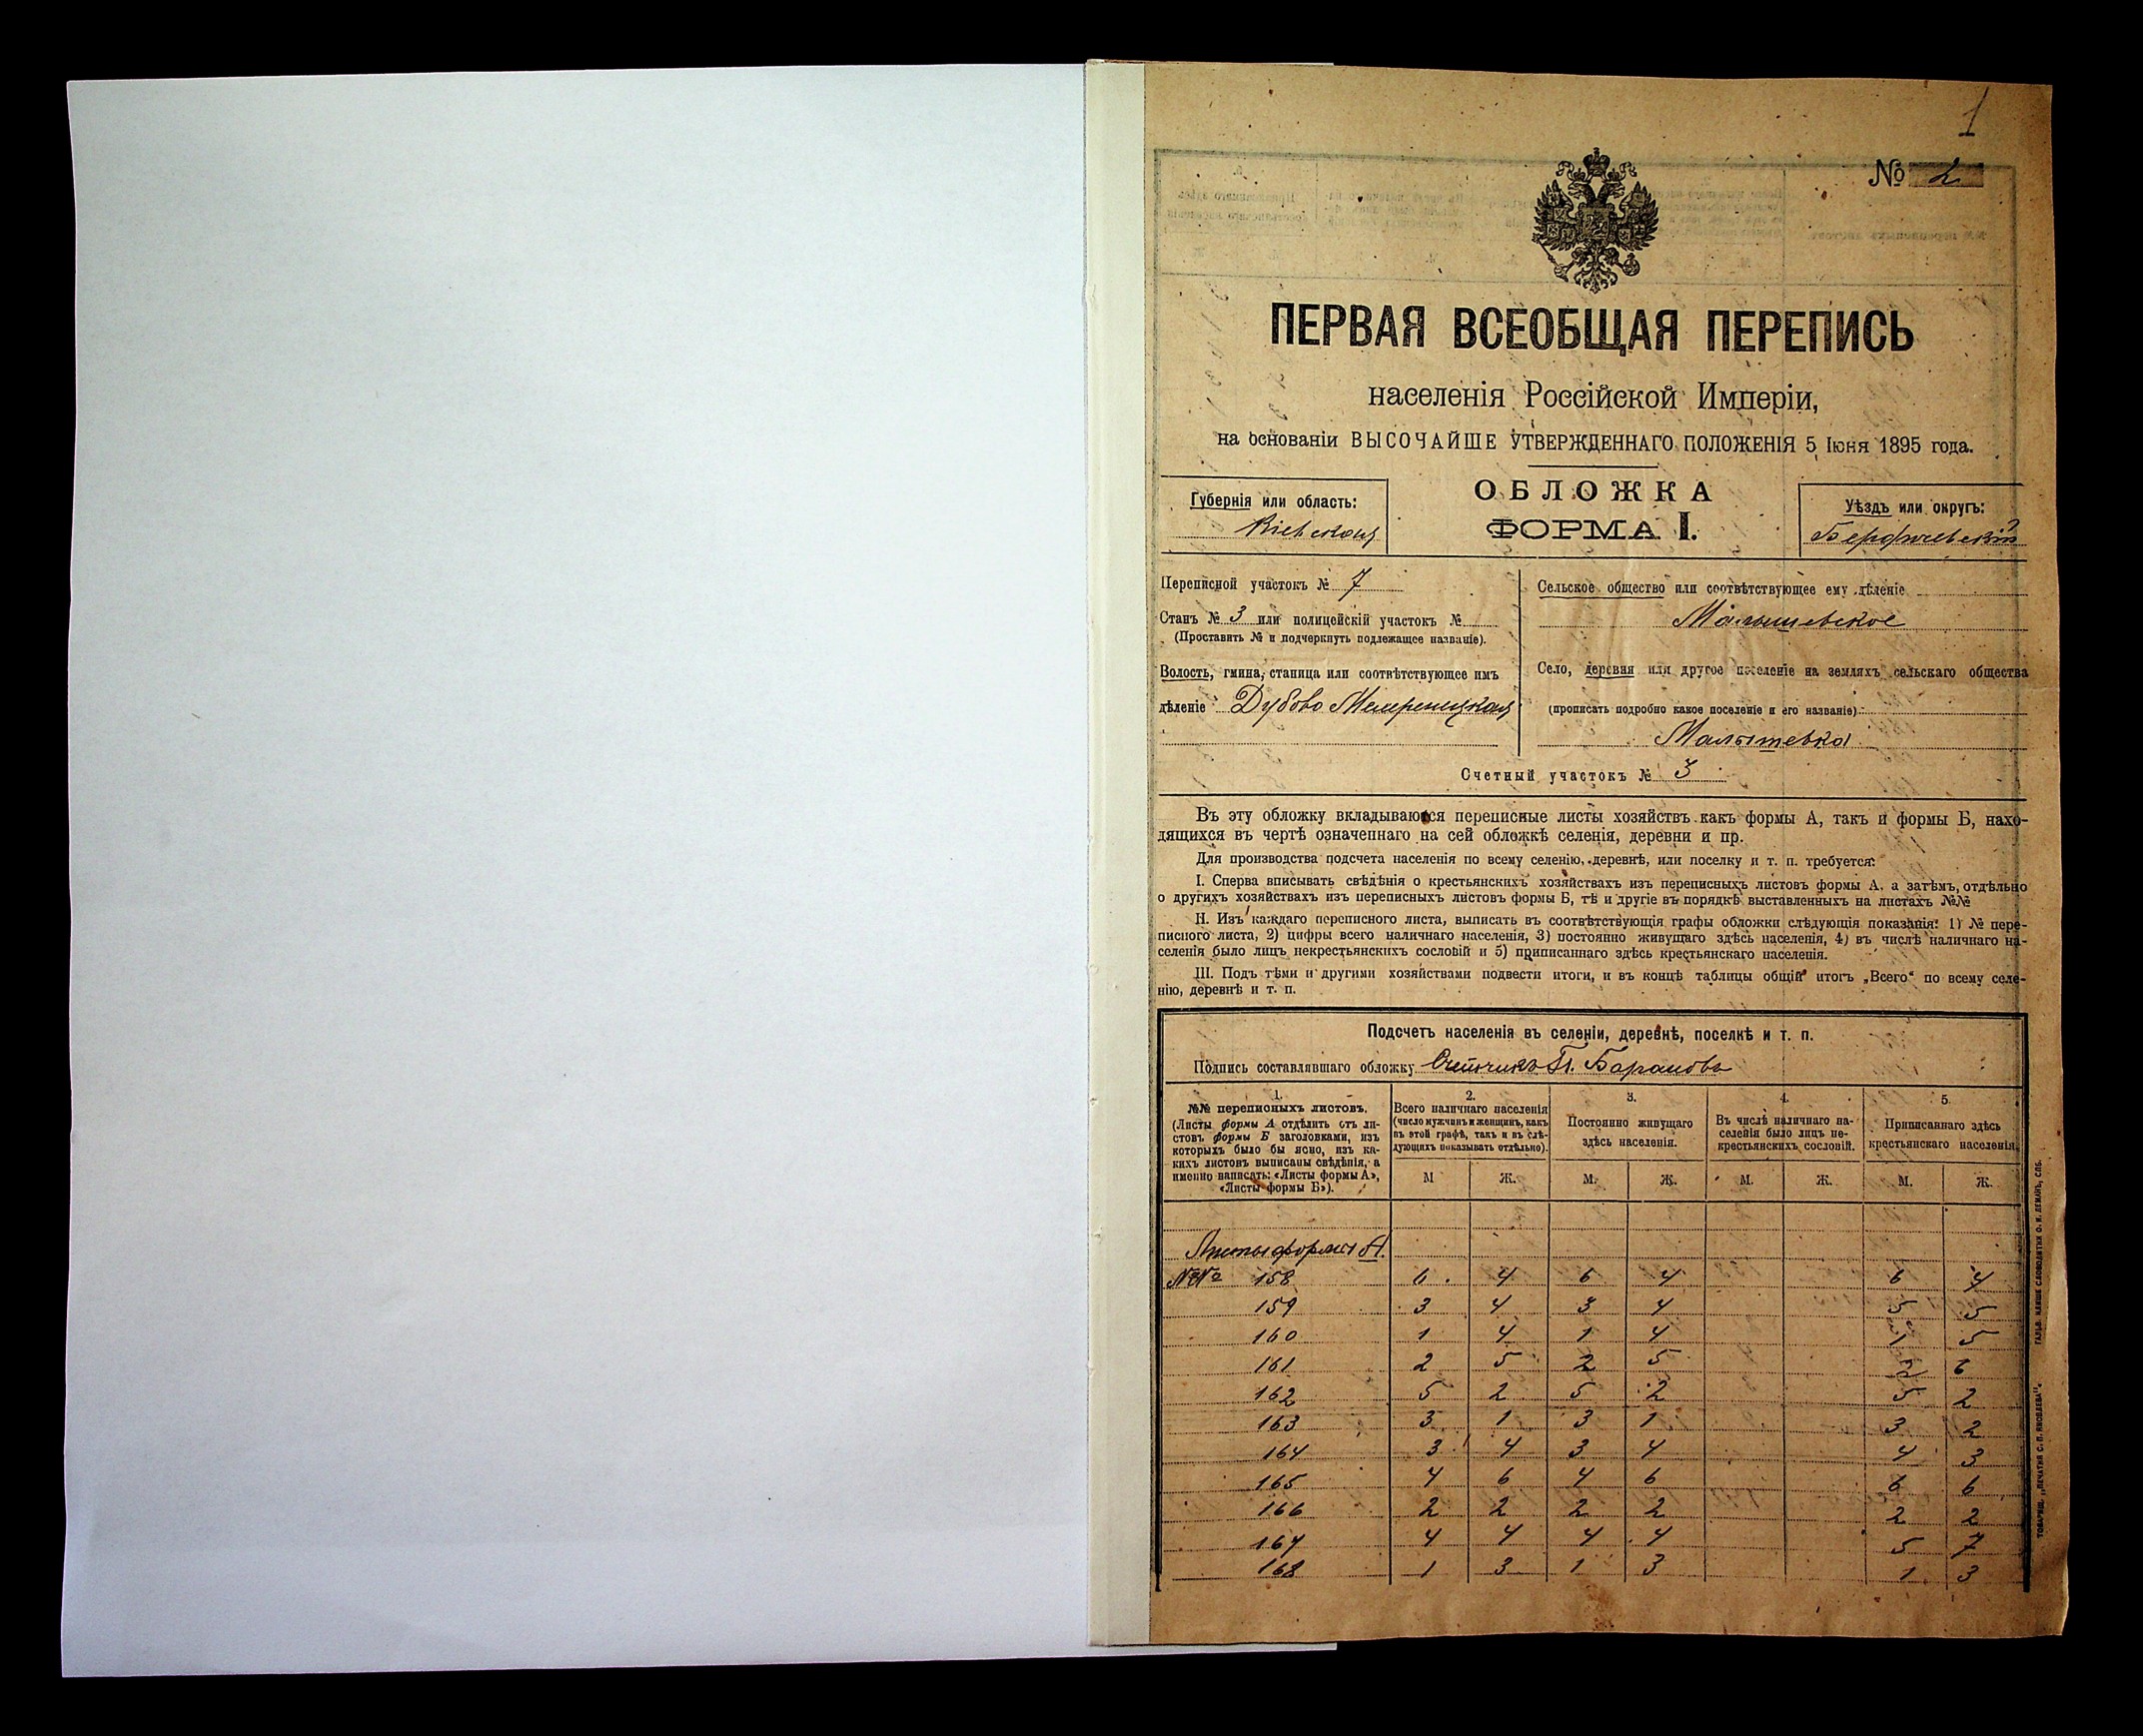 1
№ 2
ПЕРВАЯ ВСЕОБЩАЯ ПЕРЕПИСЬ
населенія Россійской Имперіи,
на основаніи ВЫСОЧАЙШЕ УТВЕРЖДЕННАГО ПОЛОЖЕНІЯ 5 Іюня 1895 года.
Губернія или область:
Кіевская
ОБЛОЖКА
ФОРМА I.
Уѣздъ или округъ:
Бердичевскій
Переписной участокъ № 7
Станъ № 3 или полицейскій участокъ №
(Проставить № и подчеркнуть подлежащее названіе).
Волость, гмина, станица или соотвѣтствующее имъ
дѣленіе Дубово Махренецкая
Сельское общество или соотвѣтствующее ему дѣленіе
Малышевское
Село, деревня или другое поселеніе на земляхъ сельскаго общества
(прописать подробно какое поселеніе и его названіе):
Малышевка
Счетный участокъ № 3
Въ эту обложку вкладываются переписные листы хозяйствъ какъ формы А, такъ и формы Б, нахо-
дящихся въ чертѣ означеннаго на сей обложкѣ селенія, деревни и пр.
Для производства подсчета населенія по всему селенію, деревнѣ, или поселку и т. п. требуется:
I. Сперва вписывать свѣдѣнія о крестьянскихъ хозяйствахъ изъ переписныхъ листовъ формы А, а затѣмъ, отдѣльно
о другихъ хозяйствахъ изъ переписныхъ листовъ формы Б, тѣ и другіе въ порядкѣ выставленныхъ на листахъ №№
II. Изъ каждаго переписного листа, выписать въ соотвѣтствующія графы обложки слѣдующія показанія: 1) № пере-
писного листа, 2) цифры всего наличнаго населенія, 3) постоянно живущаго здѣсь населенія, 4) въ числѣ наличнаго на-
селенія было лицъ некрестьянскихъ сословій и 5) приписаннаго здѣсь крестьянскаго населенія.
III. Подъ тѣми и другими хозяйствами подвести итоги, и въ концѣ таблицы общій итогъ „Всего“ по всему селе-
нію, деревнѣ и т. п.
Подсчетъ населенія въ селеніи, деревнѣ, поселкѣ и т. п.
Подпись составлявшаго обложку Счетчикъ П. Барановъ
1.
№№ переписныхъ листовъ.
(Листы формы А отдѣлить отъ ли-
стовъ формы Б заголовками, изъ
которыхъ было бы ясно, изъ ка-
кихъ листовъ выписаны свѣдѣнія, а
именно написать: «Листы формы А»,
«Листы формы Б»).
2.
Всего наличнаго населенія
(число мужчинъ и женщинъ, какъ
въ этой графѣ, такъ и въ слѣ-
дующихъ показывать отдѣльно).
3.
Постоянно живущаго
здѣсь населенія.
4.
Въ числѣ наличнаго на-
селенія было лицъ не-
крестьянскихъ сословій.
5.
Приписаннаго здѣсь
крестьянскаго населенія.
М Ж. М. Ж. М. Ж. М. Ж.
Листы формы А.
№№ 158 6 4 6 4 6 4
159 3 4 3 4 5 5
160 1 4 1 4 1 5
161 2 5 2 5 2 6
162 5 2 5 2 5 2
163 3 1 3 1 3 2
164 3 4 3 4 4 3
165 4 6 4 6 6 6
166 2 2 2 2 2 2
167 4 4 4 4 5 7
168 1 3 1 3 1 3
ТОВАРИЩ. „ПЕЧАТНЯ С. П. ЯКОВЛЕВА“.
ГАЛЬВ. КЛИШЕ СЛОВОЛИТНИ О. И. ЛЕМАНЪ, СПБ.